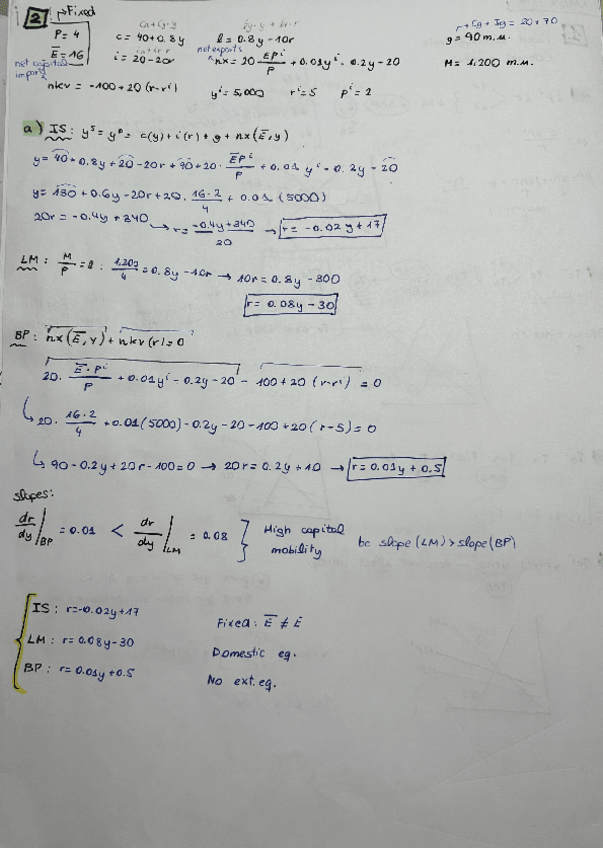 2 Fixed
P = 4
Ē = 16
c = 40 + 0.8y
i = 20 - 20r
l = 0.8y - 10r
net exports
nx = 20 · EPⁱ/P + 0.01yⁱ - 0.2y - 20
g = 90 m.u.
M = 1,200 m.u.
net capital
nkv = -100 + 20 (r - rⁱ)
yⁱ = 5,000 rⁱ = 5 pⁱ = 2
a) IS: yˢ = yᴰ = c(y) + i(r) + g + nx(Ē, y)
y = 40 + 0.8y + 20 - 20r + 90 + 20 · ĒPⁱ/P + 0.01 yⁱ - 0.2y - 20
y = 130 + 0.6y - 20r + 20 · 16·2/4 + 0.01 (5000)
20r = -0.4y + 340 → r = -0.4y + 340/20 → r = -0.02y + 17
LM: M/P = l : 1,200/4 = 0.8y - 10r → 10r = 0.8y - 300
r = 0.08y - 30
BP: nx(Ē, y) + nkv(r) = 0
20 · Ē·Pⁱ/P + 0.01yⁱ - 0.2y - 20 - 100 + 20 (r - rⁱ) = 0
20 · 16·2/4 + 0.01 (5000) - 0.2y - 20 - 100 + 20 (r - 5) = 0
90 - 0.2y + 20r - 100 = 0 → 20r = 0.2y + 10 → r = 0.01y + 0.5
slopes:
dr/dy|BP = 0.01 < dr/dy|LM = 0.08 } High capital mobility bc slope (LM) > slope (BP)
IS: r = -0.02y + 17 Fixed: Ē ≠ E
LM: r = 0.08y - 30 Domestic eq.
BP: r = 0.01y + 0.5 No ext. eq.